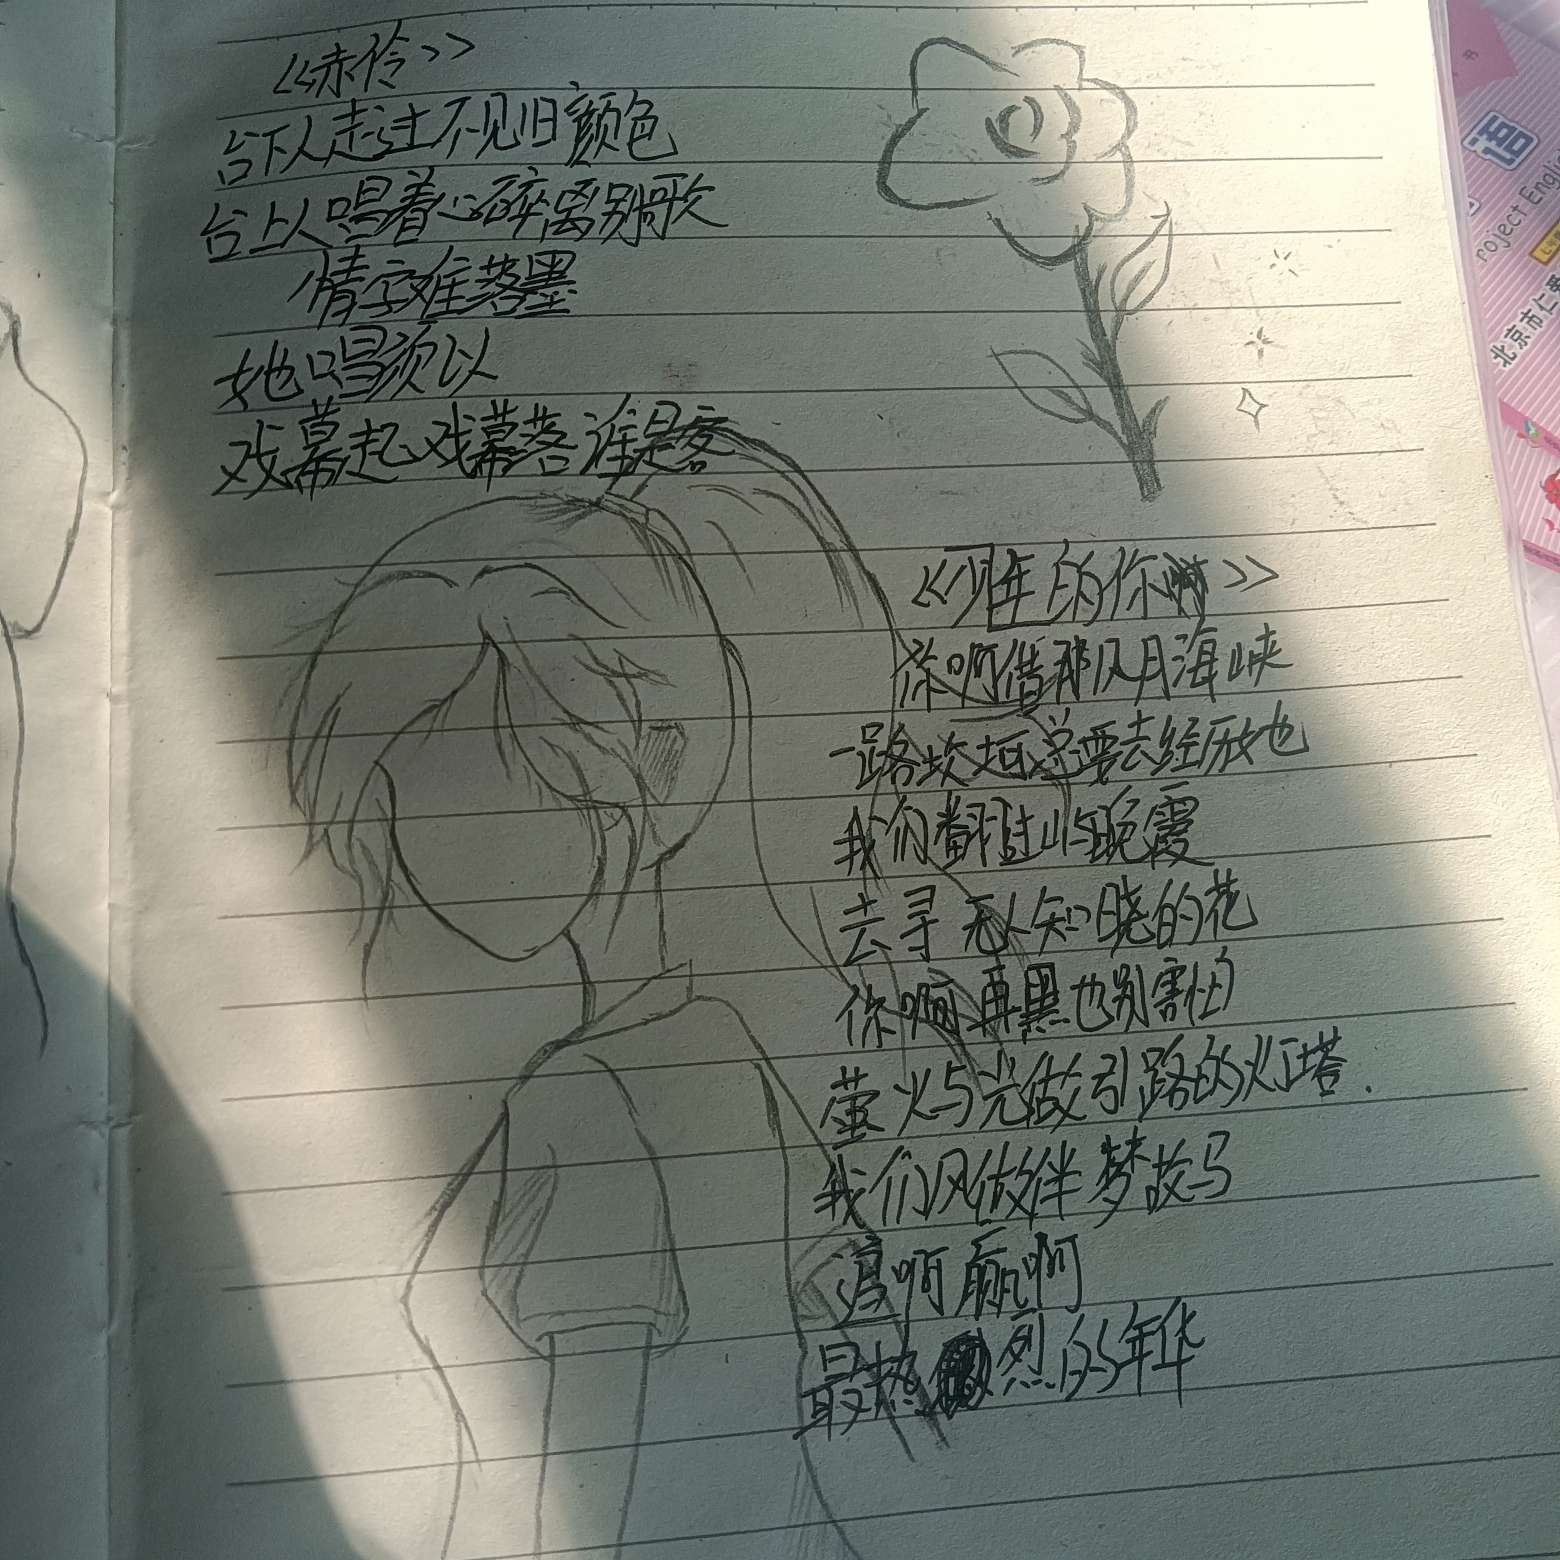 <<赤伶>>
台下人走过不见旧颜色
台上人唱着心碎离别歌
情字难落墨
她唱须以
戏幕起戏幕落谁是客
<<少年的你啊>>
你啊借那风月海峡
一路坎坷总要去经历她
我们翻过山与晚霞
去寻无人知晓的花
你啊再黑也别害怕
萤火与光做引路的灯塔.
我们风做伴梦故马
追啊疯啊
最热烈的年华
语
roject Engli
北京市仁爱